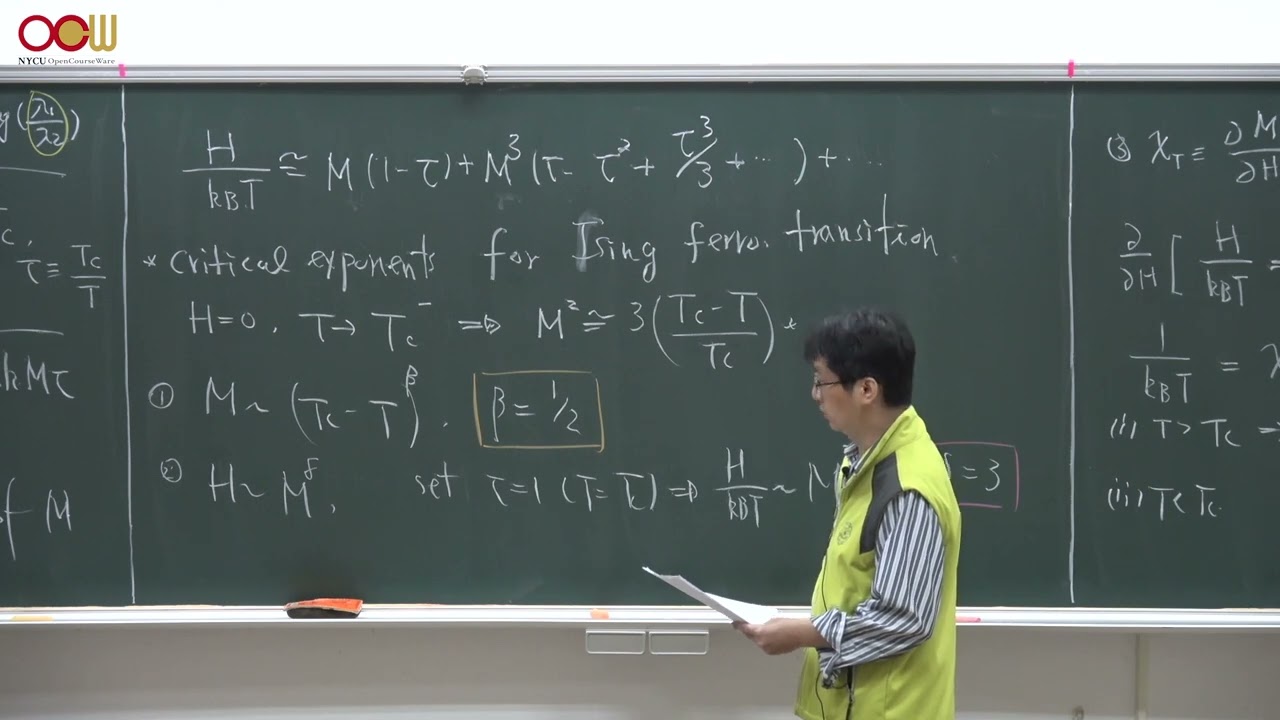 OCW
NYCU OpenCourseWare
(λ₁/λ₂)
τ ≡ Tc/T
kMτ
of M
H/kBT ≃ M(1-τ) + M³(τ - τ² + τ³/3 + ⋯) + ⋯
* critical exponents for Ising ferro. transition
H=0, T → Tc⁻ ⇒ M² ≃ 3((Tc-T)/Tc) *
① M ~ (Tc - T)^β. β = 1/2
② H ~ M^δ, set τ=1 (T=Tc) ⇒ H/kBT ~ M = 3
③ χT ≡ ∂M/∂H
∂/∂H [ H/kBT =
1/kBT = χ
(i) T > Tc ⇒
(ii) T < Tc